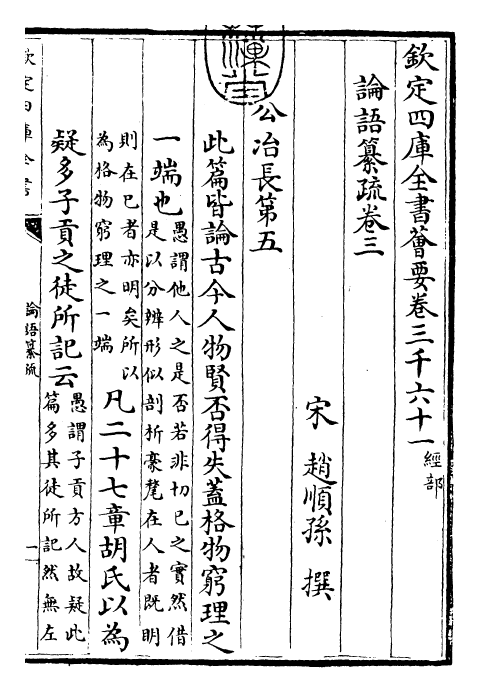 欽定四庫全書薈要卷三千六十一
經部
論語纂疏卷三
宋 趙順孫 撰
公冶長第五
此篇皆論古今人物賢否得失蓋格物窮理之
一端也
愚謂他人之是否若非切已之實然借
是以分辨形似剖析豪氂在人者既明
則在已者亦明矣所以
為格物窮理之一端
凡二十七章胡氏以為
疑多子貢之徒所記云
愚謂子貢方人故疑此
篇多其徒所記然無左
欽定四庫全書
論語纂疏
一